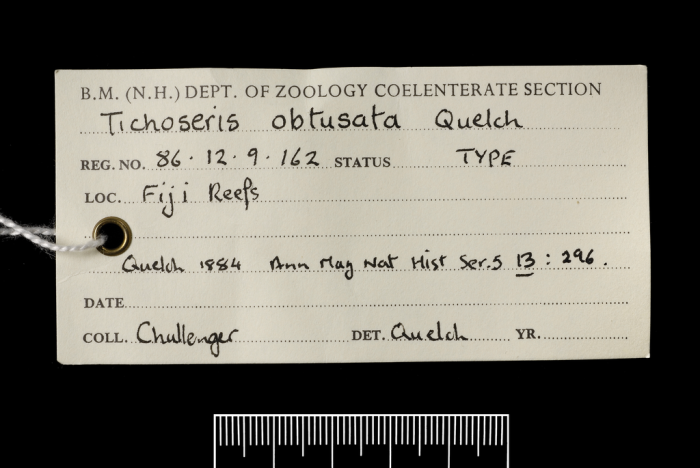 B.M. (N.H.) DEPT. OF ZOOLOGY COELENTERATE SECTION
Tichoseris obtusata Quelch
REG. NO. 86.12.9.162 STATUS TYPE
LOC. Fiji Reefs
Quelch 1884 Ann Mag Nat Hist Ser.5 13 : 296.
DATE
COLL. Challenger DET. Quelch YR.